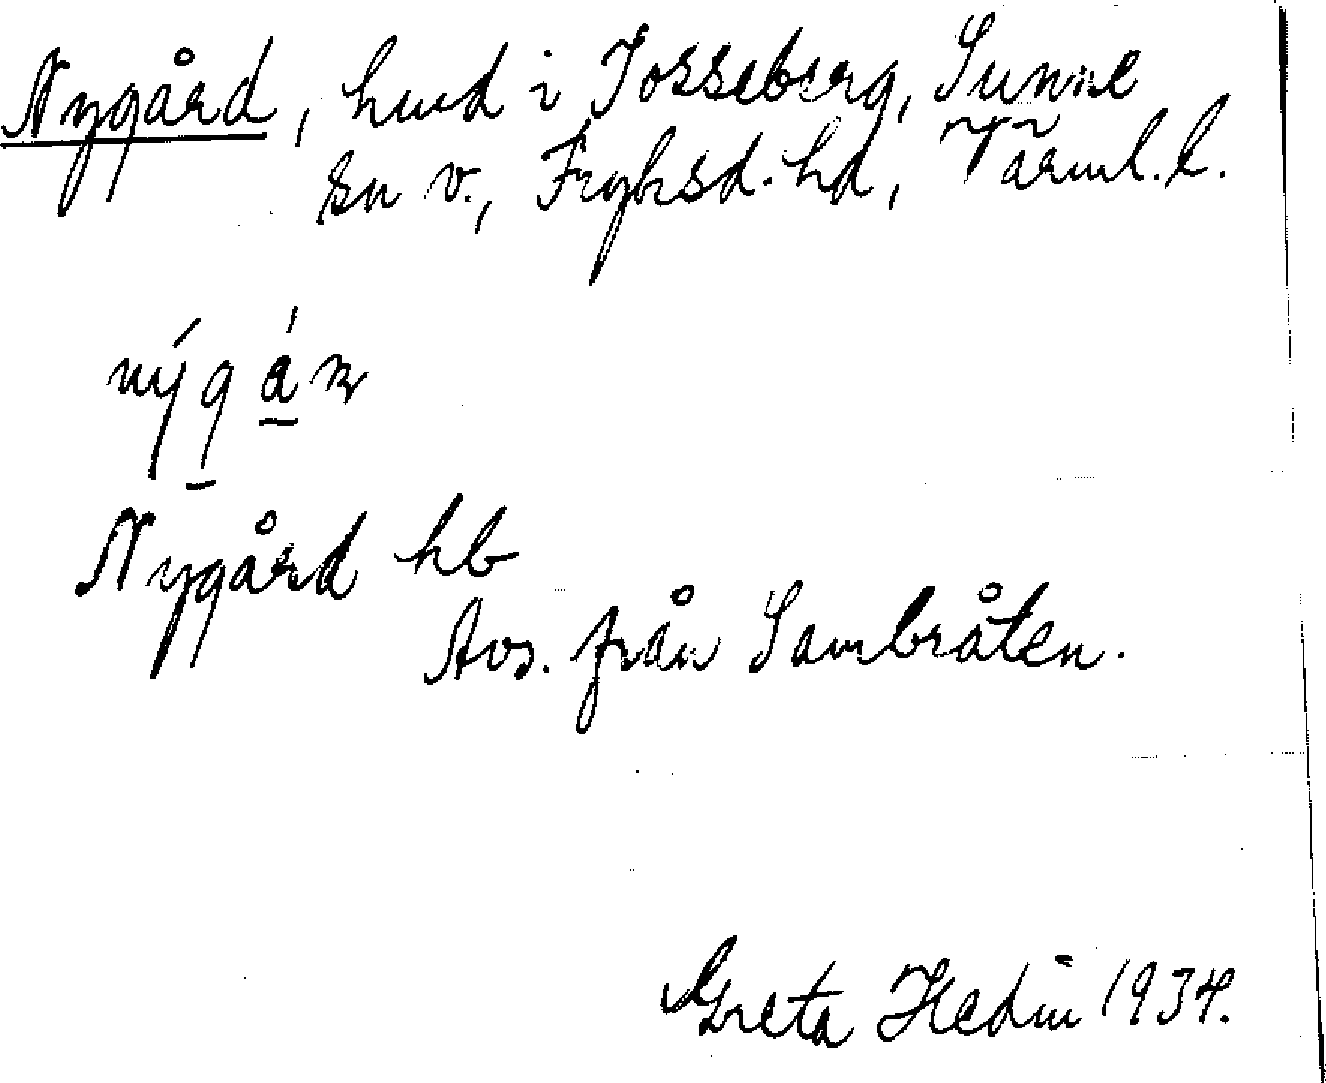 Nygård, hmd i Josseberg, Sunne
sn v., Fryksd. hd, Värml. l.
nýgár
Nygård hb
Avs. från Sambråten.
Greta Hedin 1934.